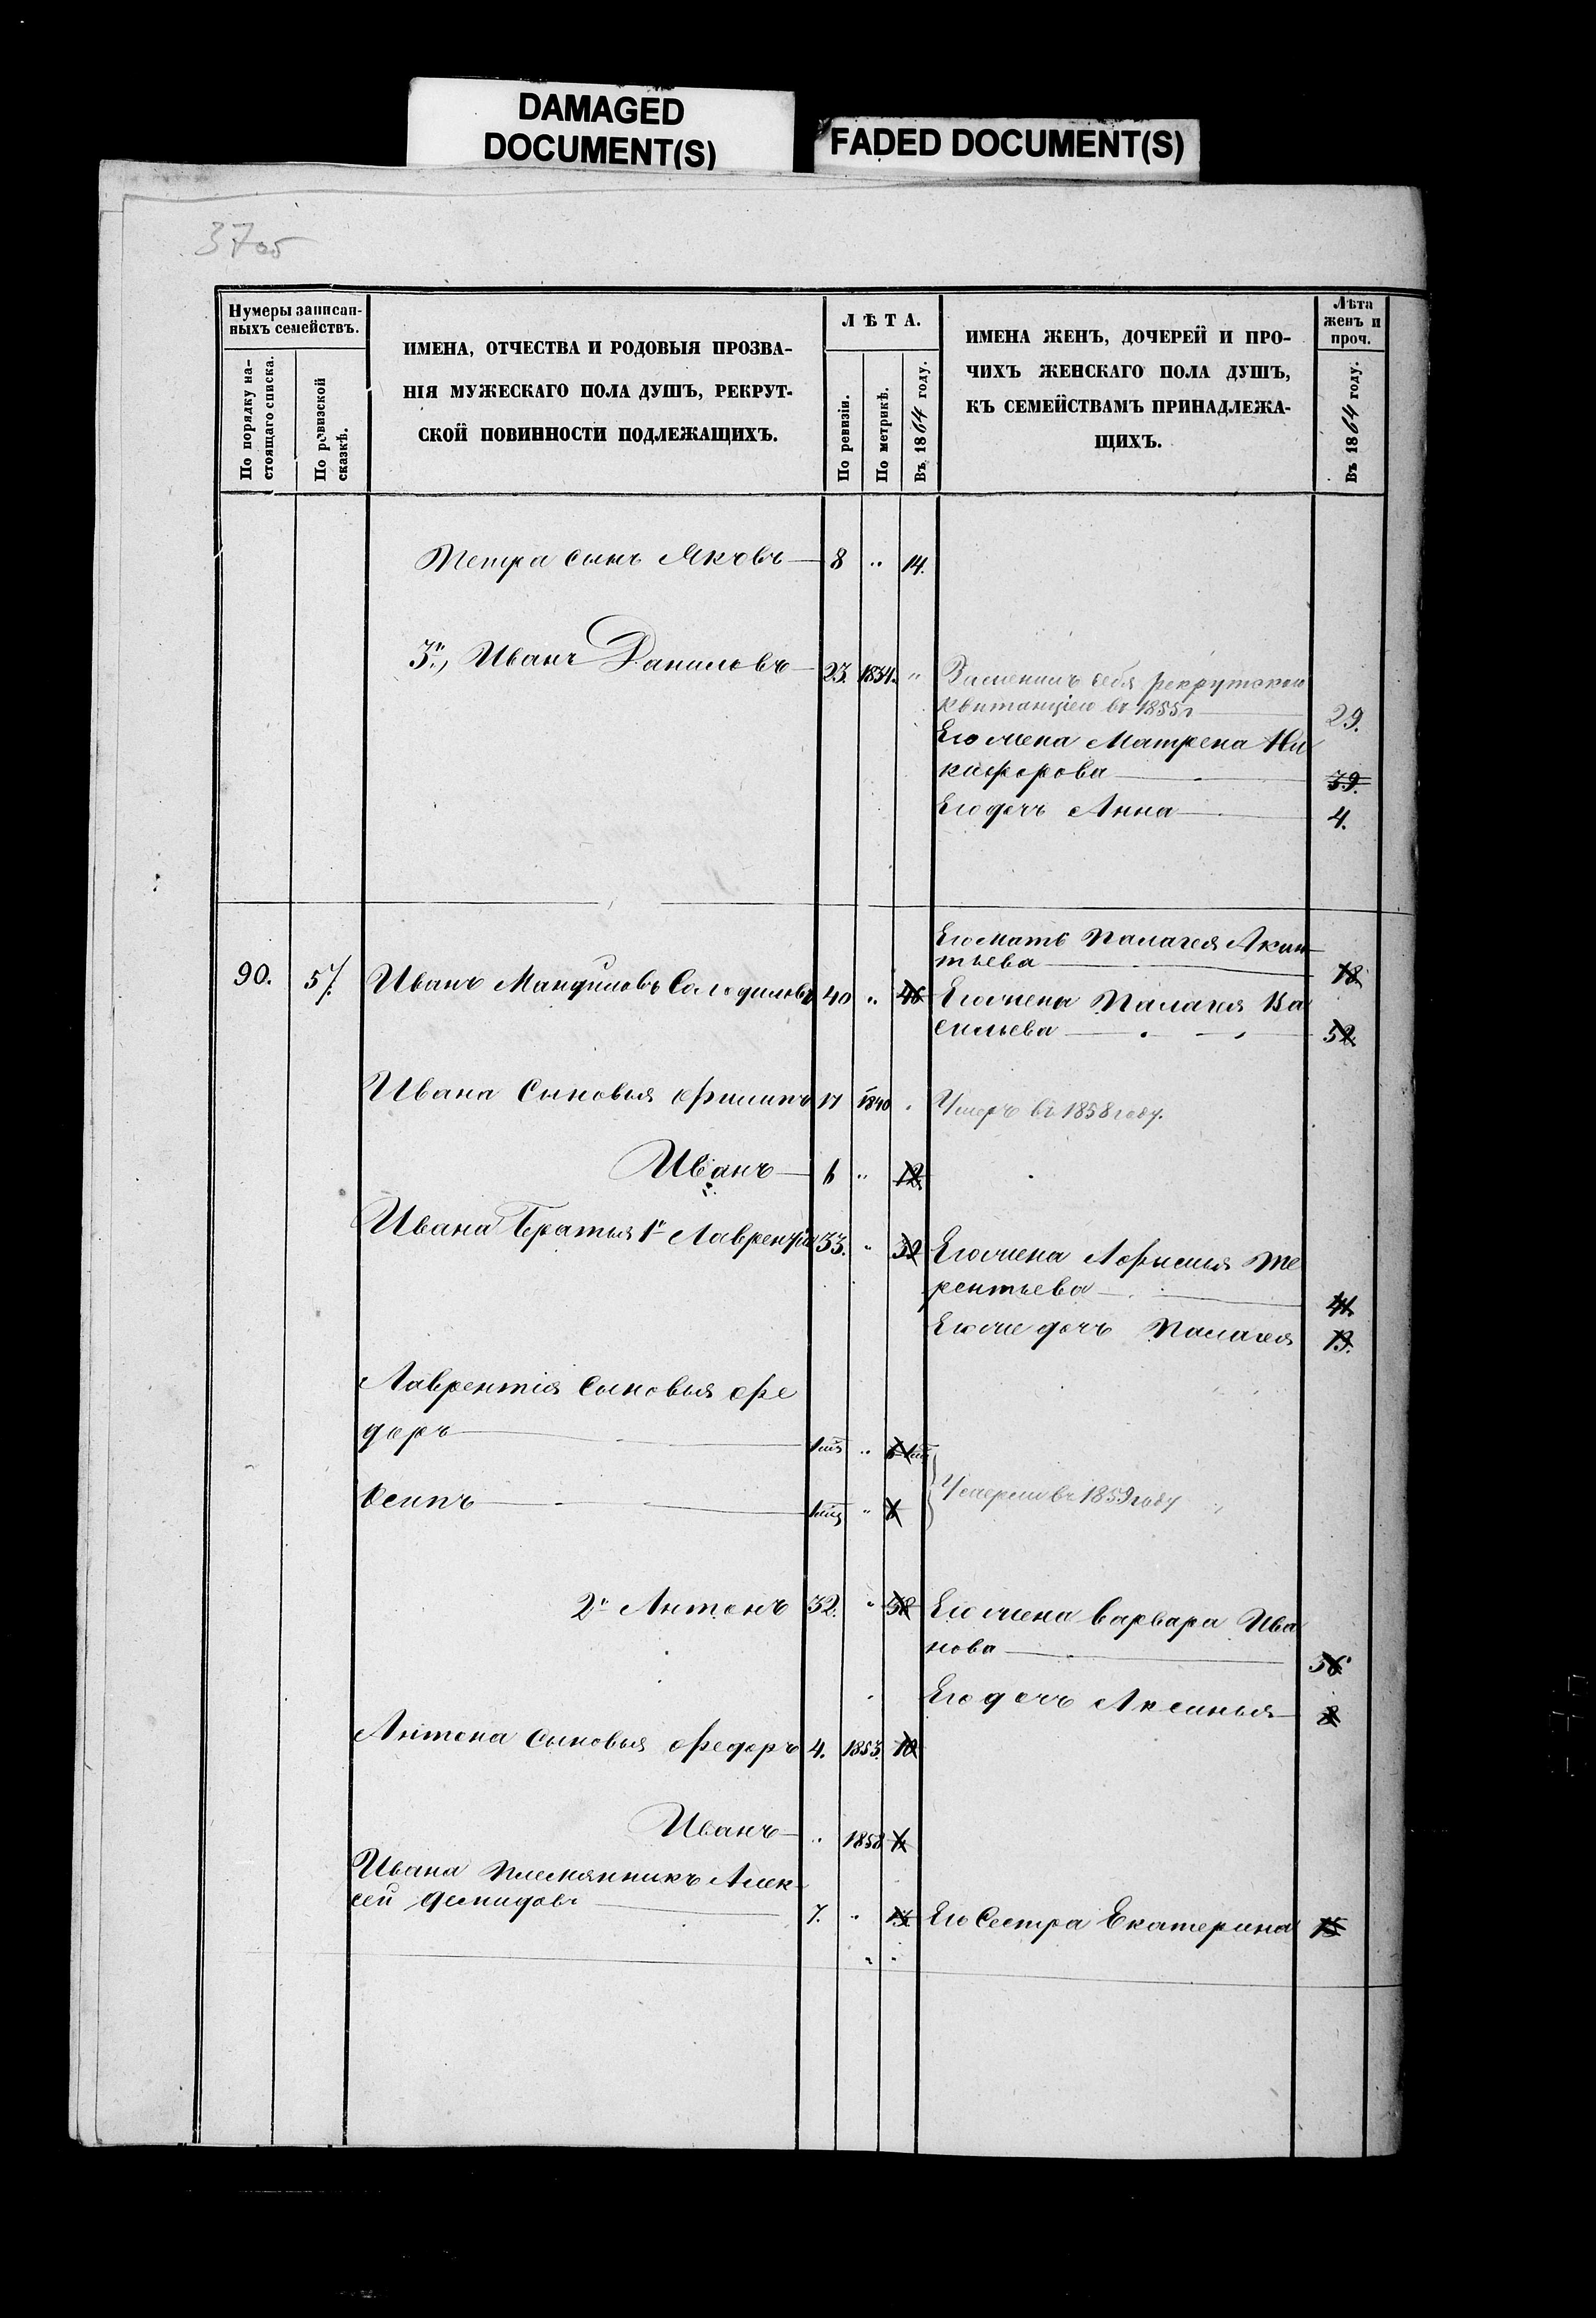 DAMAGED
DOCUMENT(S)
FADED DOCUMENT(S)
37об
Нумеры записан-
ныхъ семействъ.
По порядку на-
стоящаго списка.
По ревизской
сказкѣ.
ИМЕНА, ОТЧЕСТВА И РОДОВЫЯ ПРОЗВА-
НІЯ МУЖЕСКАГО ПОЛА ДУШЪ, РЕКРУТ-
СКОЙ ПОВИННОСТИ ПОДЛЕЖАЩИХЪ.
ЛѢТА.
По ревизіи.
По метрикѣ.
Въ 1864 году.
ИМЕНА ЖЕНЪ, ДОЧЕРЕЙ И ПРО-
ЧИХЪ ЖЕНСКАГО ПОЛА ДУШЪ,
КЪ СЕМЕЙСТВАМЪ ПРИНАДЛЕЖА-
ЩИХЪ.
Лѣта
женъ и
проч.
Въ 1864 году.
Петра сынъ Яковъ 8 " 14.
3й, Иванъ Даниловъ 23. 1834. "
Заменилъ себя рекрутскою
квитанціею въ 1855 г 29.
Его жена Матрена Ни
кифорова 39.
Его дочь Анна 4.
Его мать Палагея Акин
тьева
90. 57. Иванъ 40 " 46
Его жена Палагея Ва
сильева 52.
Ивана сыновья Филипъ 17 1840 "
Умеръ въ 1858 году.
Иванъ 6 " 12
Ивана Братья 1й Лаврентій 33. " 39
Его жена Афимья Те
рентьева 41
Его же дочь Палагея 13.
Лаврентія сыновья Фе
доръ
Осипъ
Умерли въ 1859 году
2й Антонъ 32. " 38
Его жена Варвара Ива
нова 36
Его дочь Аксинья 8
Антона сыновья Федоръ 4. 1853. 10
Иванъ " 1858 6
Ивана племянникъ Алек-
сей Демидовъ 7. " 13
Его Сестра Екатерина 15